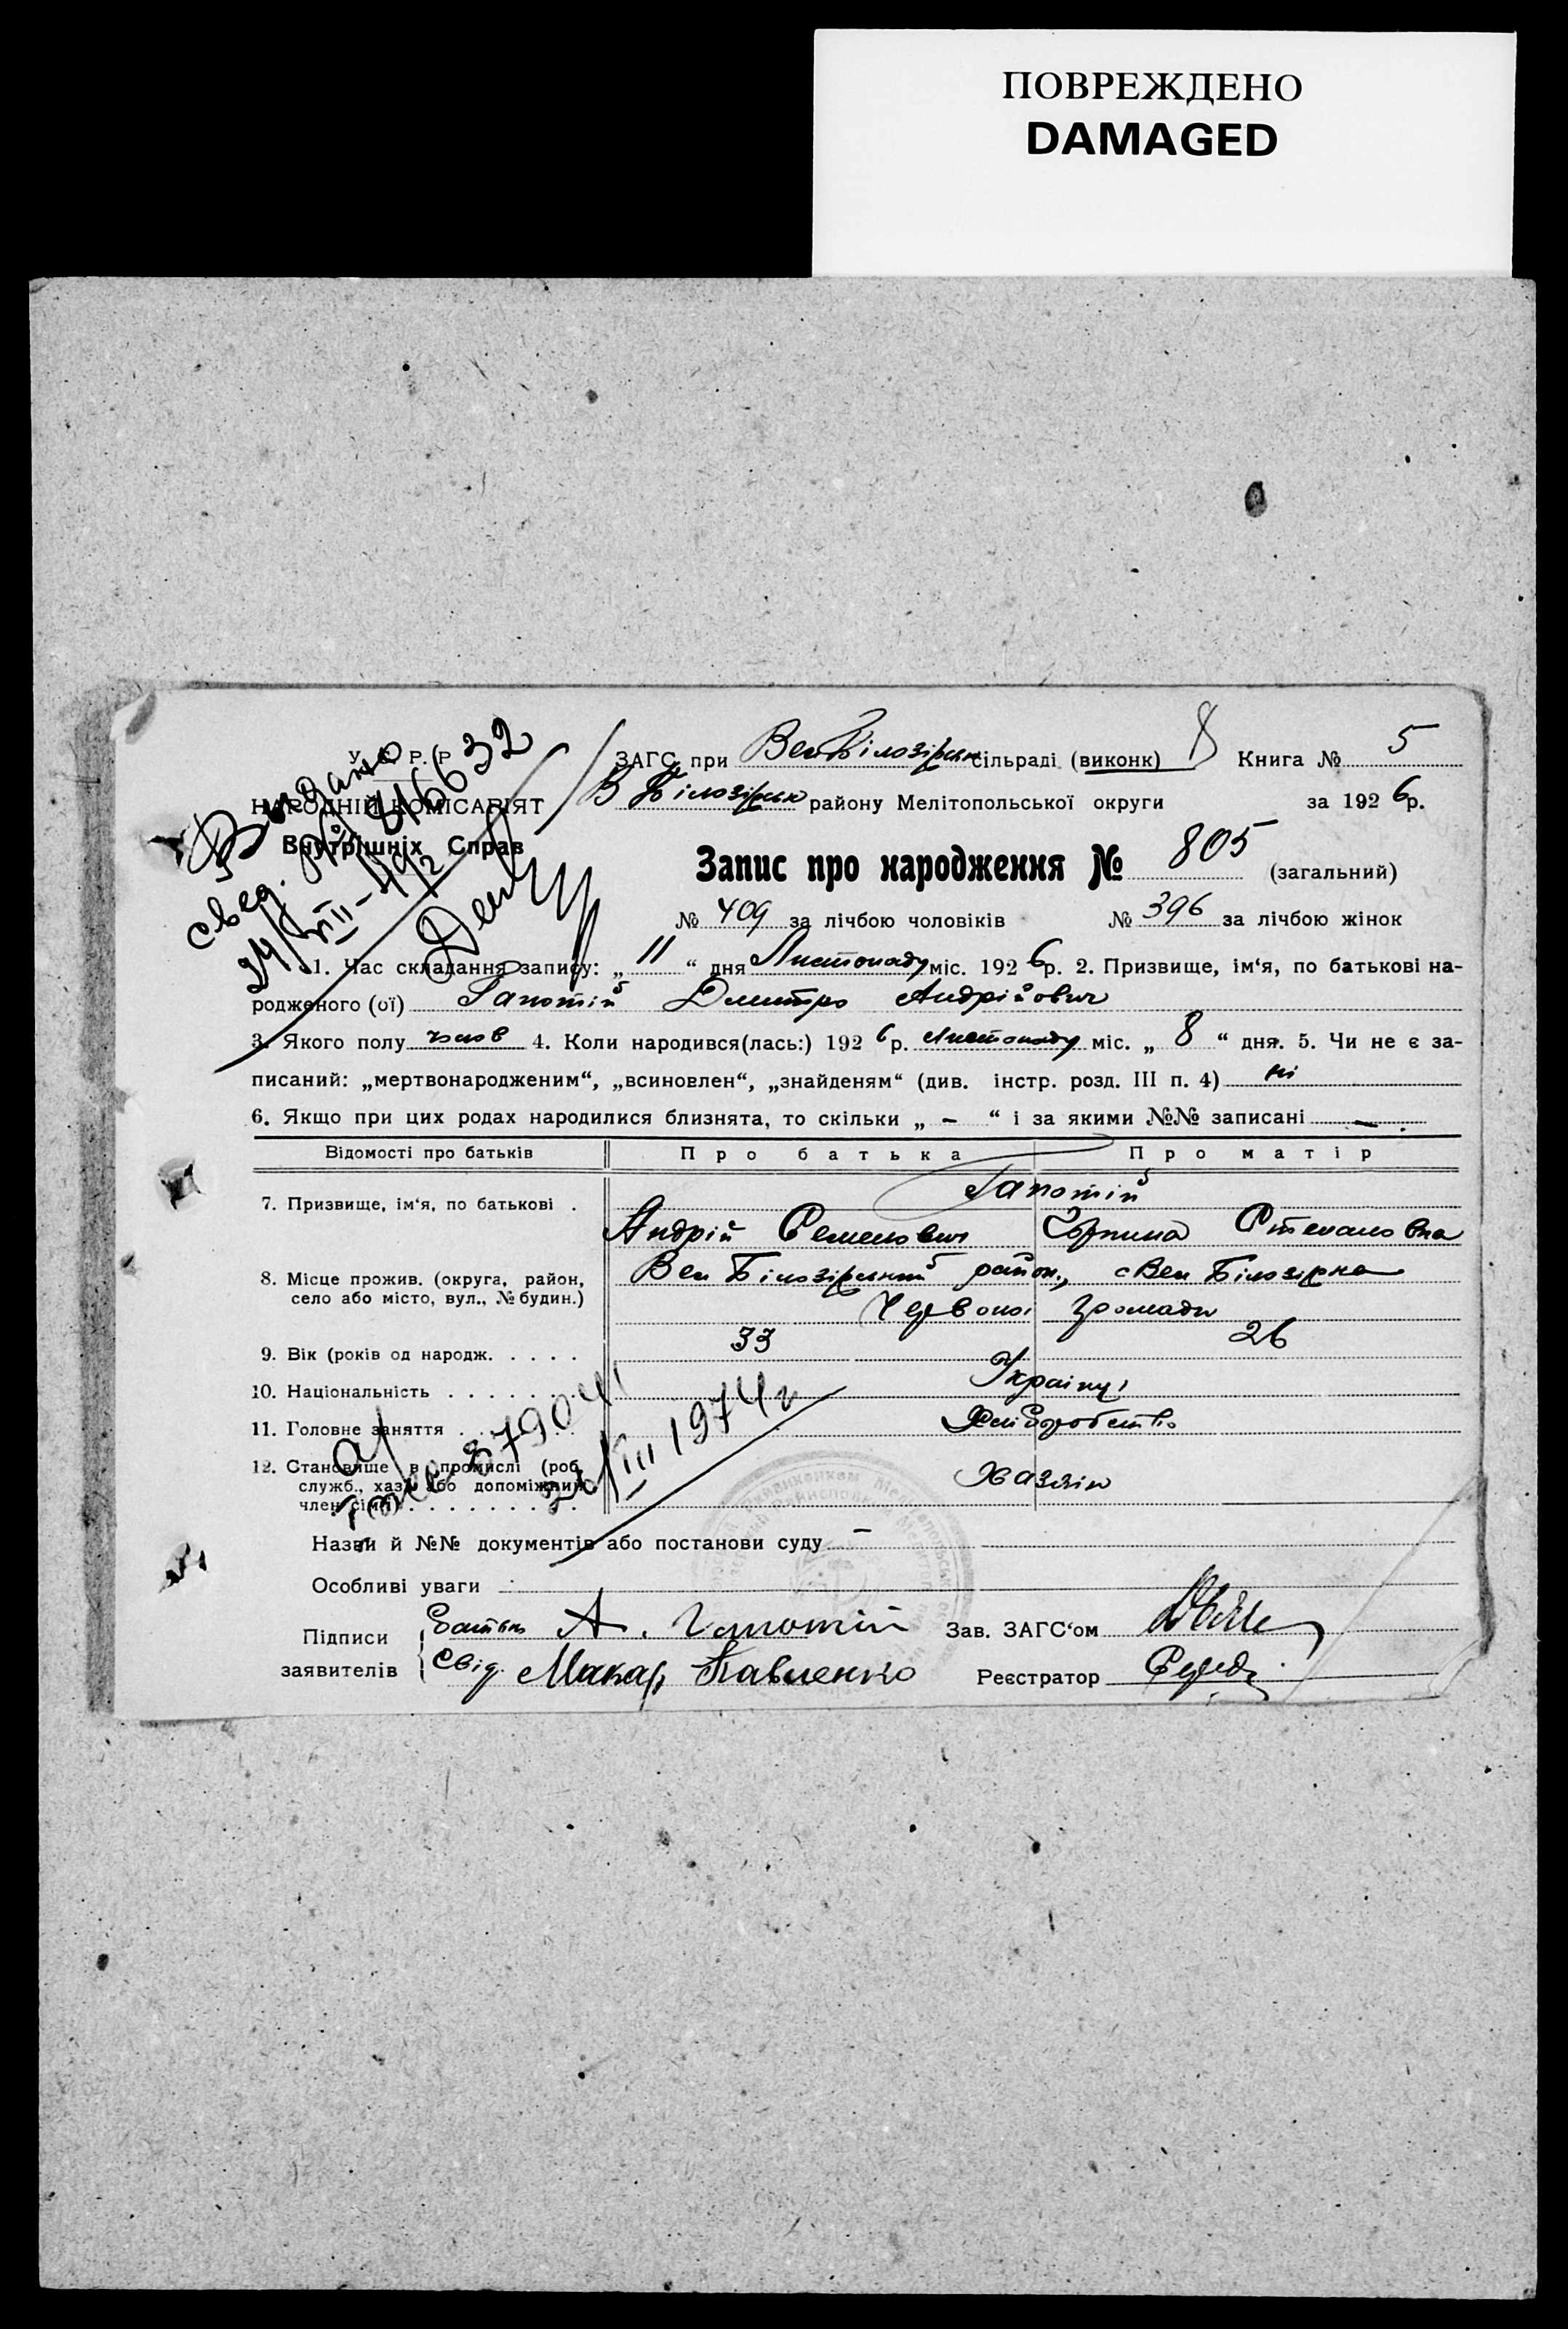 ПОВРЕЖДЕНО
DAMAGED
У. С. Р. Р.
НАРОДНІЙ КОМІСАРІЯТ
Внутрішніх Справ
Видано
свед. № 816632
24/VIII-49
ЗАГС при Вел Білозірськ сільраді (виконк) 8 Книга № 5
В Білозірськ району Мелітопольської округи за 1926р.
Запис про народження № 805 (загальний)
№ 409 за лічбою чоловіків № 396 за лічбою жінок
1. Час складання запису: „ 11 “ дня Листопаду міс. 1926р. 2. Призвище, ім‘я, по батькові на-
родженого (ої) Гапотій Дмитро Андрійович
3. Якого полу чолов 4. Коли народився(лась:) 1926р. Листопаду міс. „ 8 “ дня. 5. Чи не є за-
писаний: „мертвонародженим“, „всиновлен“, „знайденям“ (див. інстр. розд. III п. 4) ні
6. Якщо при цих родах народилися близнята, то скільки „ – “ і за якими №№ записані –
Відомості про батьків Про батька Про матір
7. Призвище, ім‘я, по батькові . Гапотій
Андрій Семенович Горпина Степановна
8. Місце прожив. (округа, район,
село або місто, вул., № будин.)
Вел Білозірський район., с Вел Білозірка
Червоної громади
9. Вік (років од народж. . . . . 33 26
10. Національність . . . . . . . Українці
11. Головне заняття . . . . . . Хліборобство
12. Становище в промислі (роб.
служб., хазя. або допоміжний
член сімї) . . . . . . . . . .
Хазяїн
879041
26/III 1974 г
Назви й №№ документів або постанови суду –
Особливі уваги
Підписи заявителів
Батько А. Гапотій Зав. ЗАГС‘ом
Свід. Макар Павленко Реєстратор